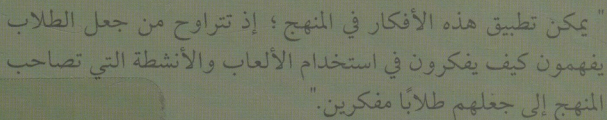 " يمكن تطبيق هذه الأفكار في المنهج ؛ إذ تتراوح من جعل الطلاب
يفهمون كيف يفكرون في استخدام الألعاب والأنشطة التي تصاحب
المنهج إلى جعلهم طلابًا مفكرين."